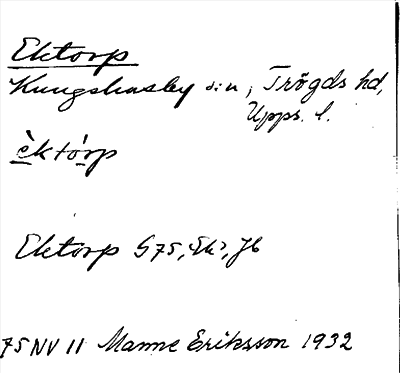 Ektorp
Kungshusby sn, Trögds hd,
Upps. l.
èktórp
Ektorp G75, Ek³, Jb
75 NV 11 Manne Eriksson 1932